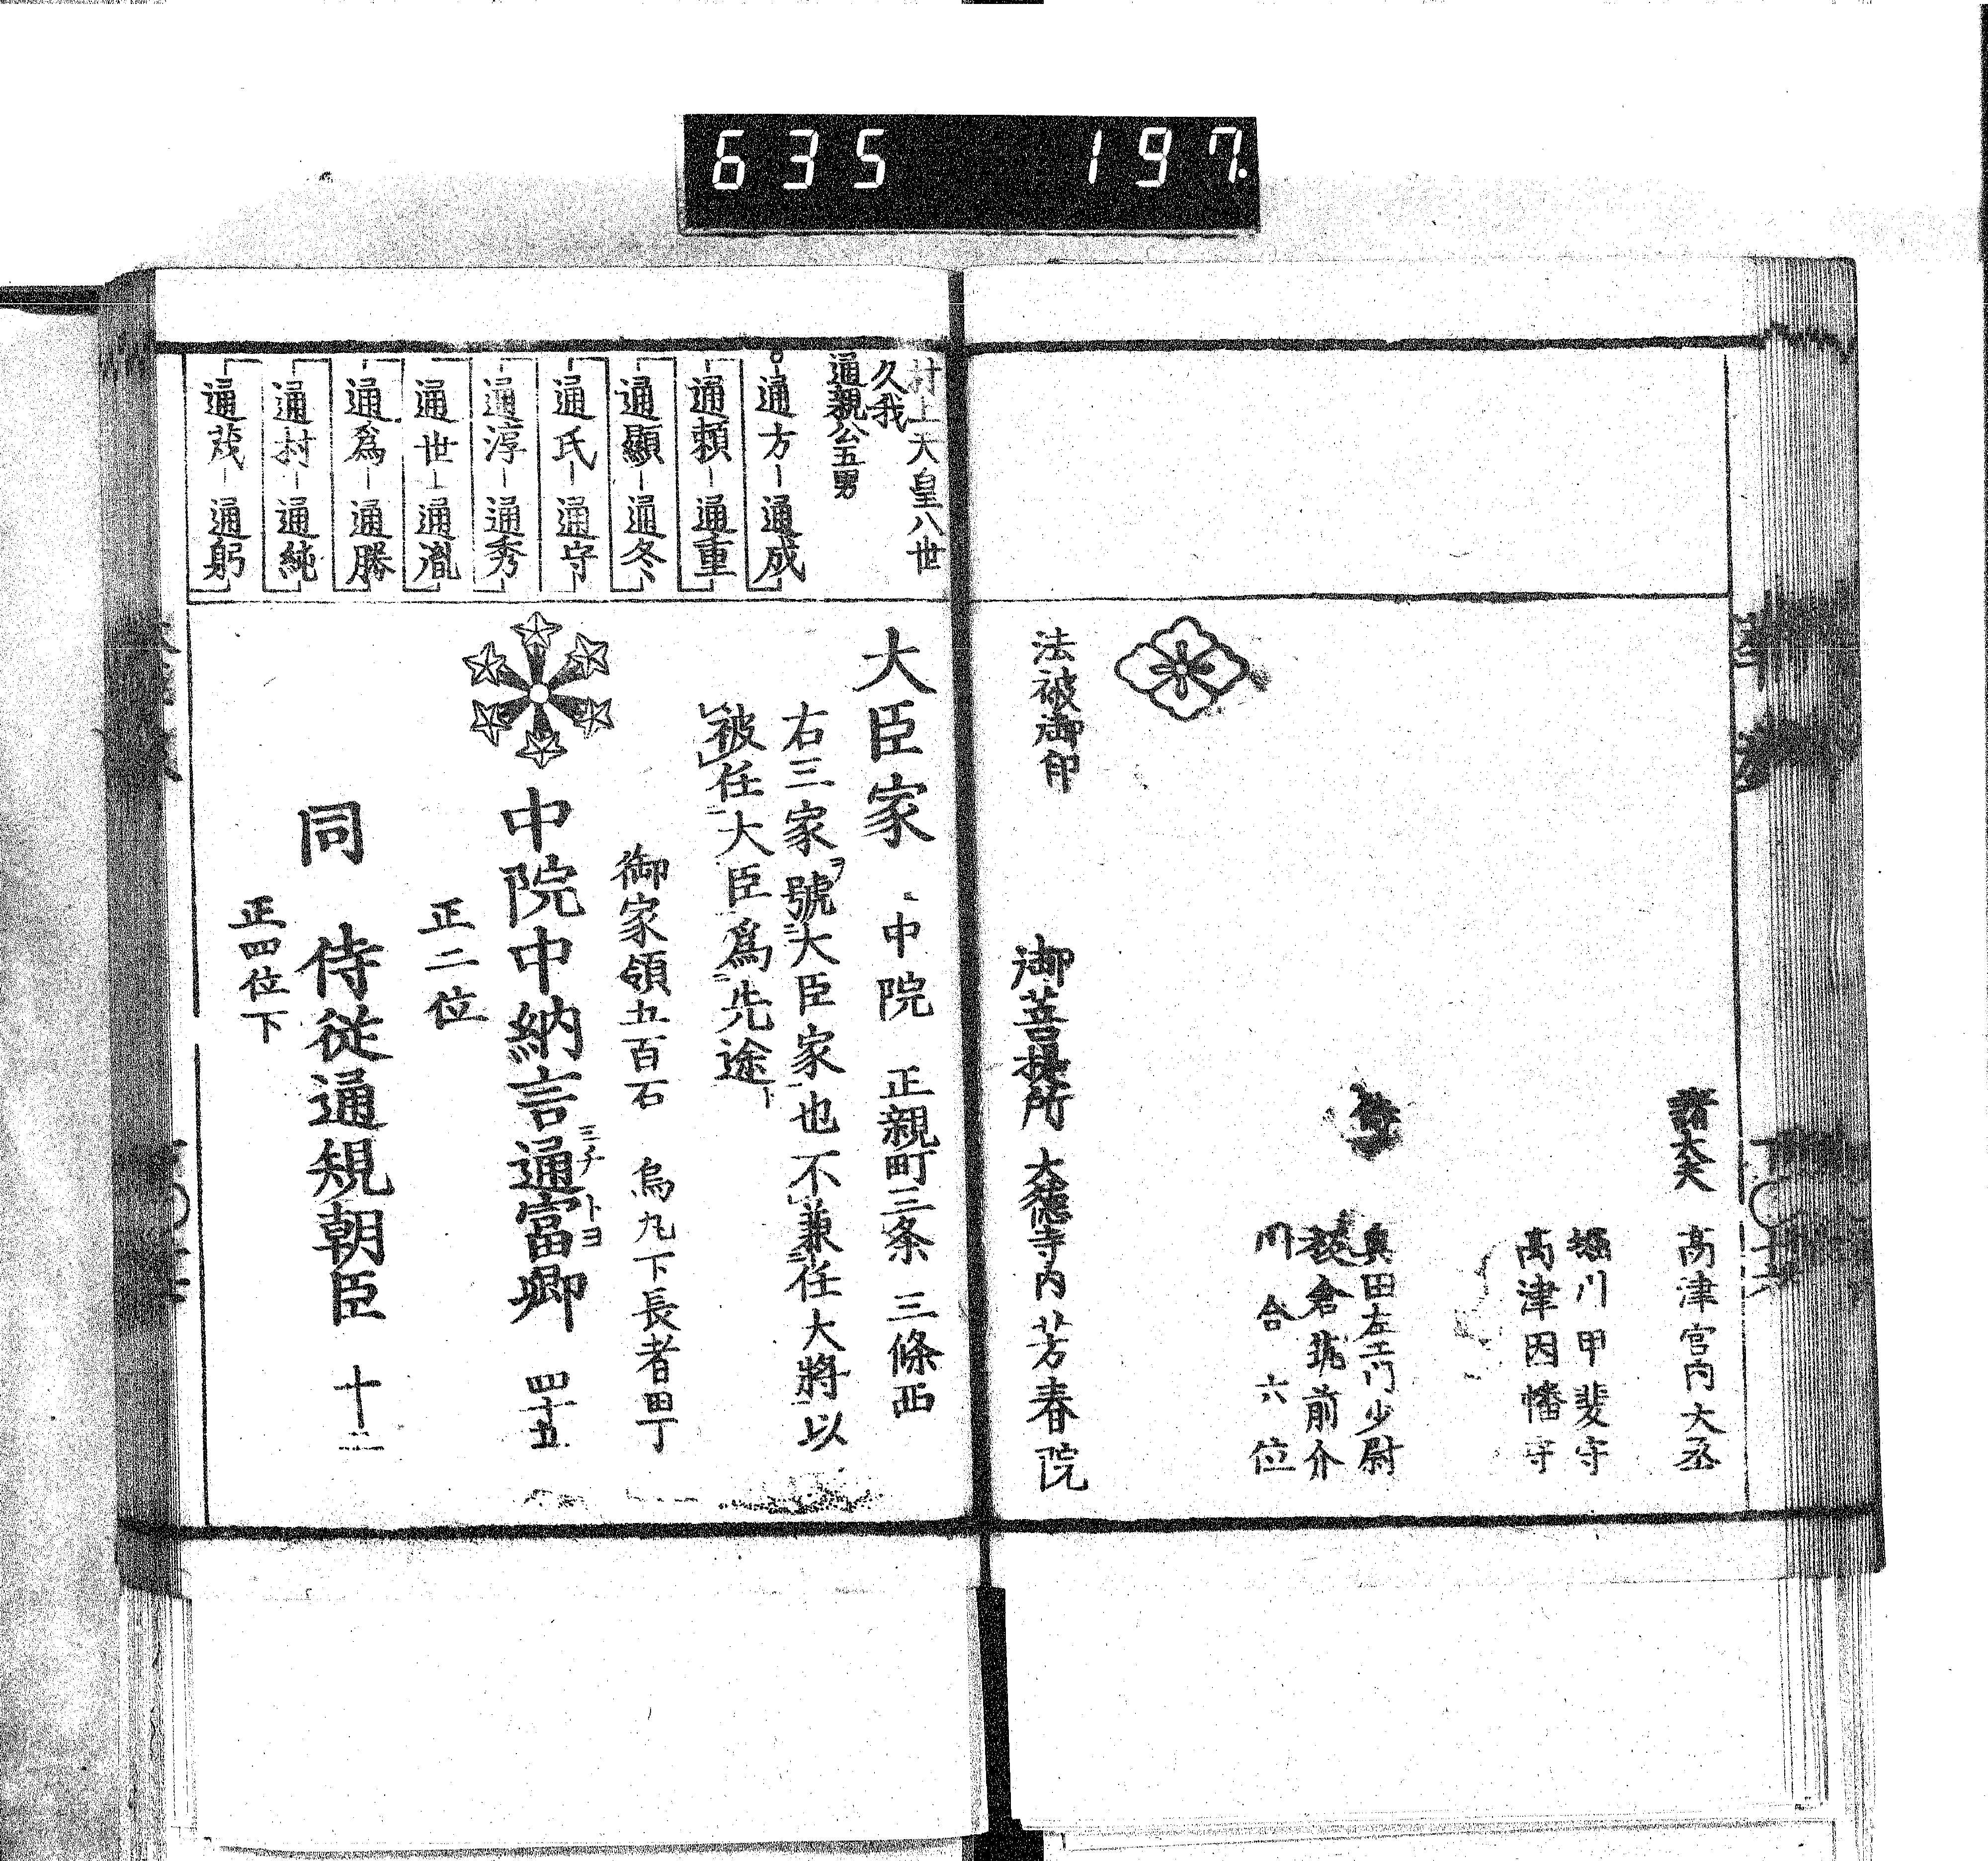 635 197.
諸大夫 高津宮内大丞
堀川甲斐守
高津因幡守
侍
奥田左工門少尉
筑前介
川合六位
法被御印
御菩提所 大德寺内芳春院
村上天皇八世
久我
通親公五男
通方―通成
通頼―通重
通顯―通冬
通氏―通守
通淳―通秀
通世―通胤
通爲―通勝
通村―通純
通茂―通躬
大臣家 中院 正親町三条 三條西
右三家號ヲ大臣家也不兼任大將以
被任大臣爲先途
御家領五百石 烏丸下長者町
中院中納言通富卿 四十五
ミチトヨ
正二位
同 侍従通規朝臣 十二
正四位下